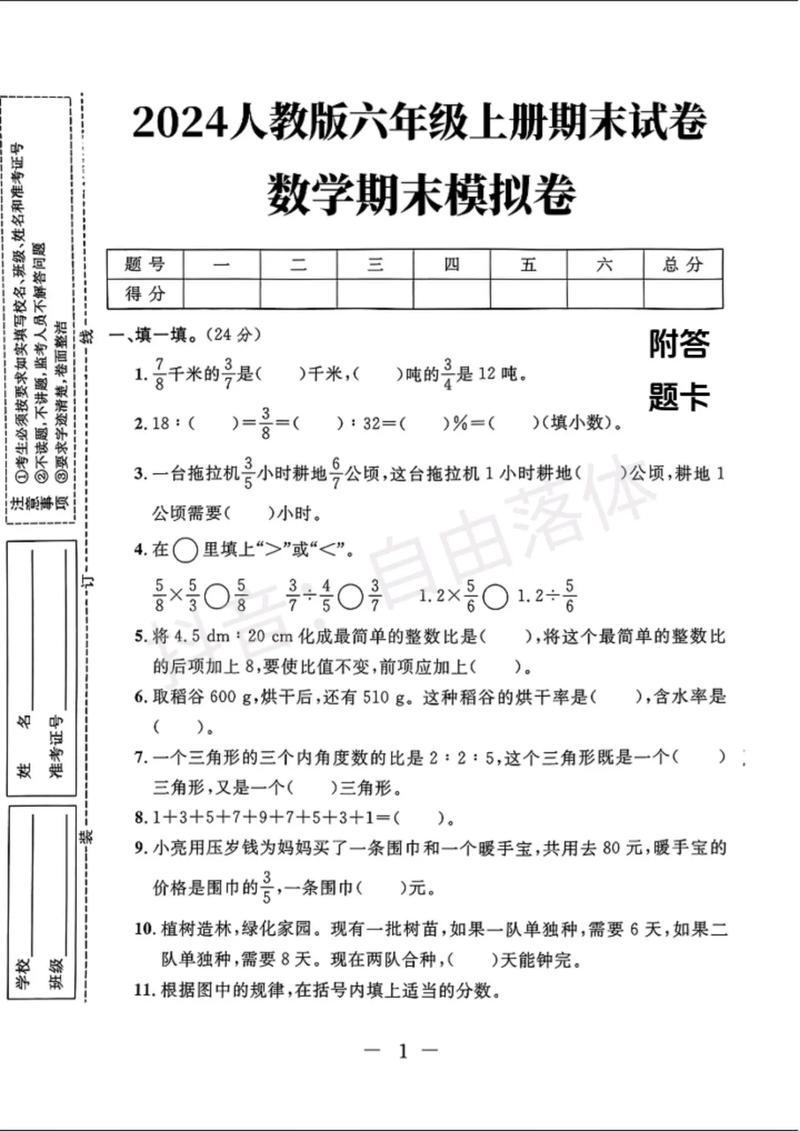 2024人教版六年级上册期末试卷
数学期末模拟卷
注意事项
①考生必须按要求如实填写校名、班级、姓名和准考证号
②不读题,不讲题,监考人员不解答问题
③要求字迹清楚,卷面整洁
姓 名
准考证号
学校
班级
线
订
装
题号 一 二 三 四 五 六 总分
得分
附答
题卡
一、填一填。(24分)
1. 7/8千米的3/7是( )千米,( )吨的3/4是12吨。
2. 18∶( )=3/8=( )∶32=( )%=( )(填小数)。
3. 一台拖拉机3/5小时耕地6/7公顷,这台拖拉机1小时耕地( )公顷,耕地1
公顷需要( )小时。
4. 在○里填上“>”或“<”。
5/8×5/3○5/8 3/7÷4/5○3/7 1.2×5/6○1.2÷5/6
5. 将4.5 dm∶20 cm化成最简单的整数比是( ),将这个最简单的整数比
的后项加上8,要使比值不变,前项应加上( )。
6. 取稻谷600 g,烘干后,还有510 g。这种稻谷的烘干率是( ),含水率是
( )。
7. 一个三角形的三个内角度数的比是2∶2∶5,这个三角形既是一个( )
三角形,又是一个( )三角形。
8. 1+3+5+7+9+7+5+3+1=( )。
9. 小亮用压岁钱为妈妈买了一条围巾和一个暖手宝,共用去80元,暖手宝的
价格是围巾的3/5,一条围巾( )元。
10. 植树造林,绿化家园。现有一批树苗,如果一队单独种,需要6天,如果二
队单独种,需要8天。现在两队合种,( )天能钟完。
11. 根据图中的规律,在括号内填上适当的分数。
抖音:自由落体
— 1 —